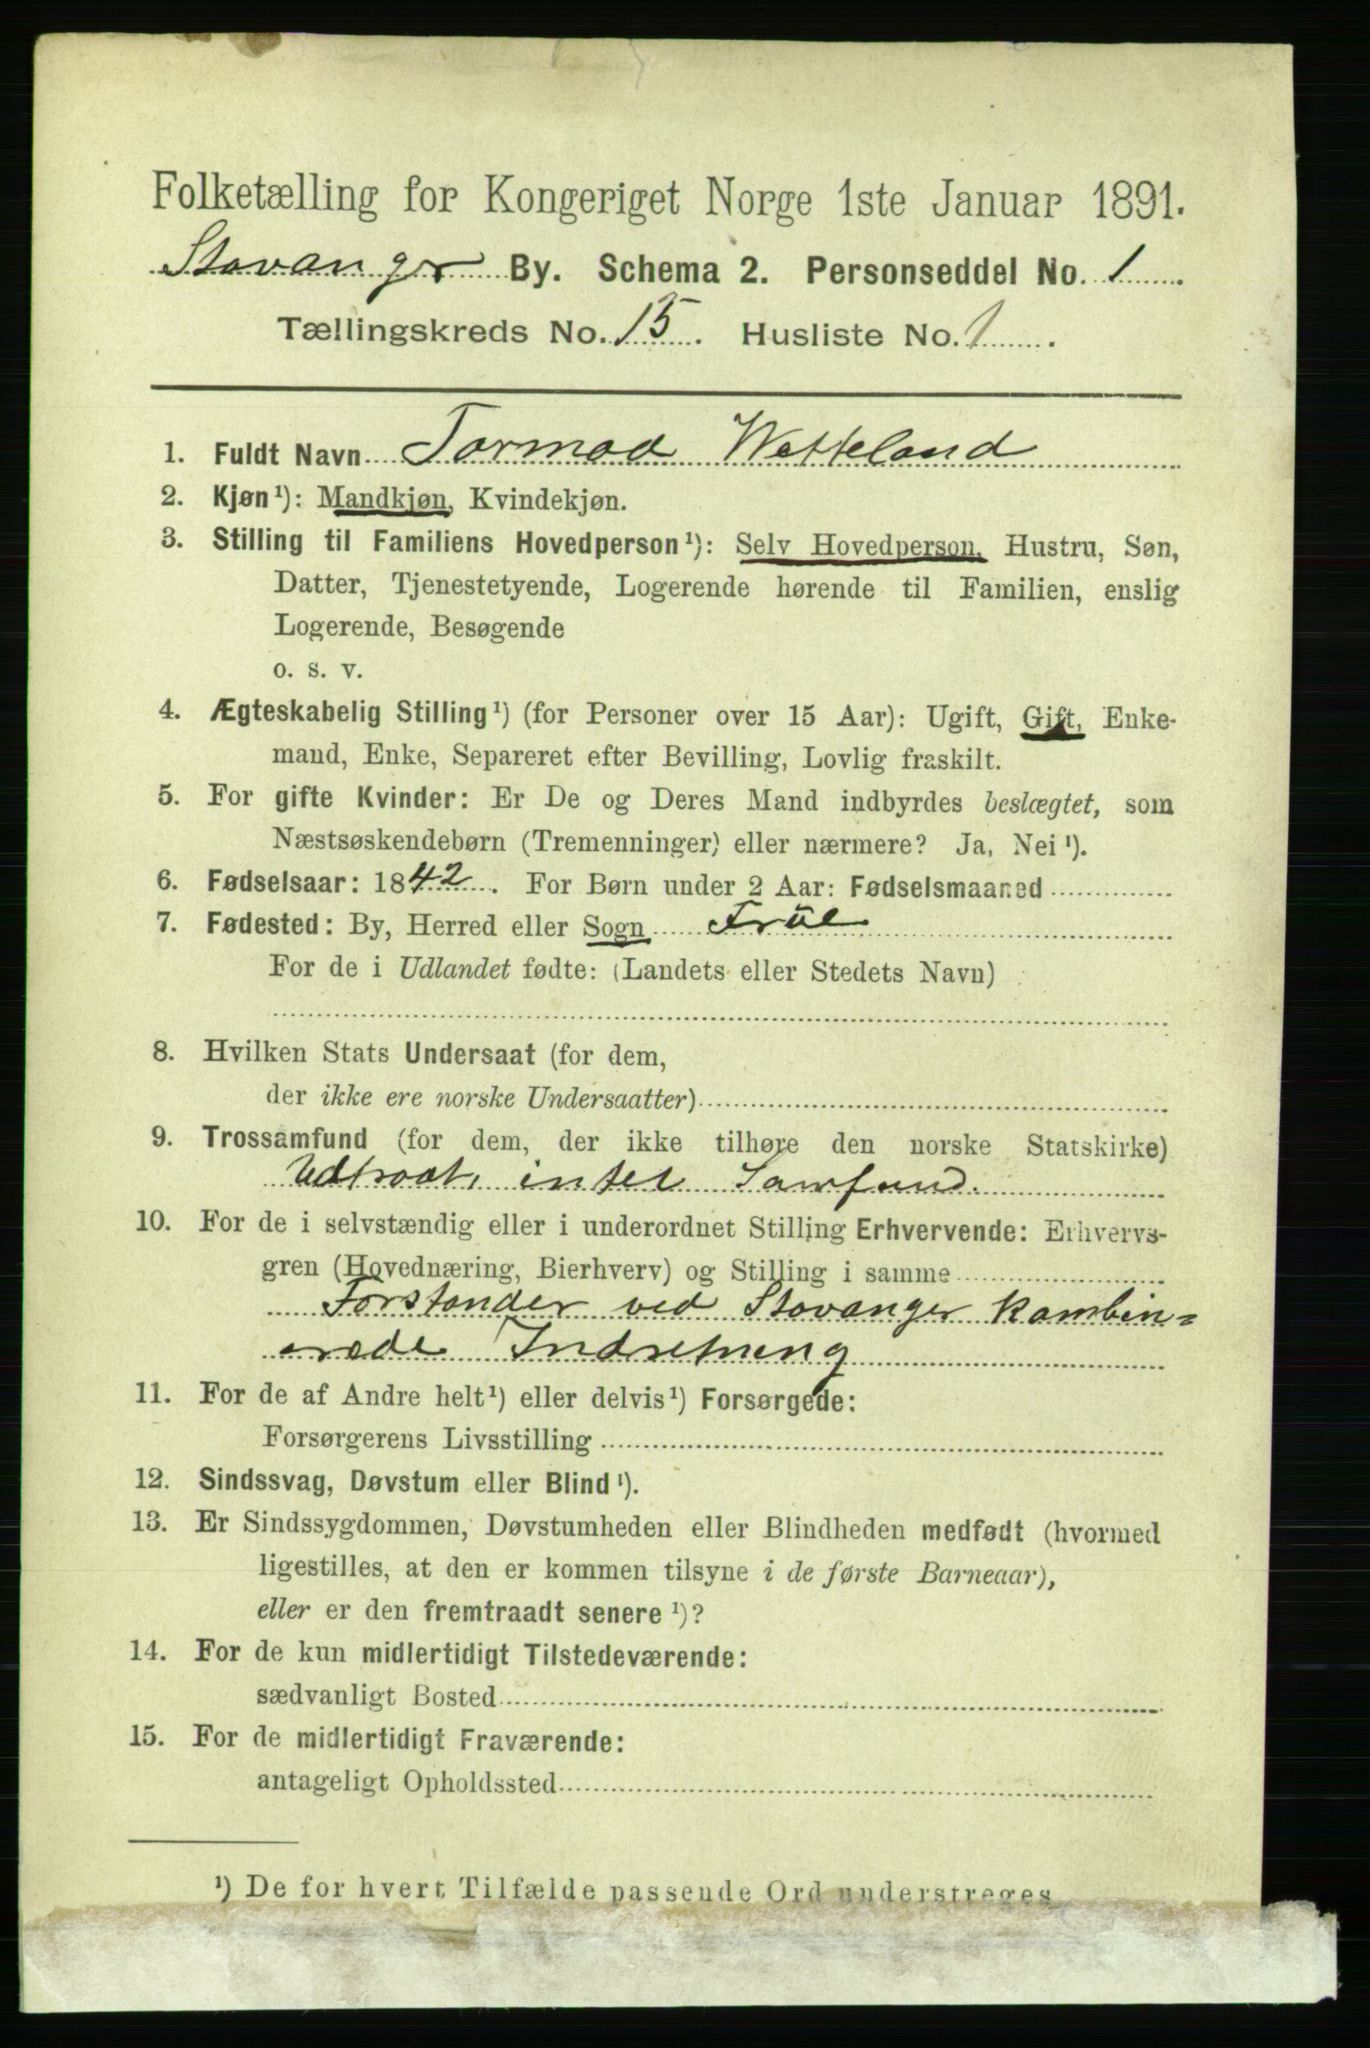 Folketælling for Kongeriget Norge 1ste Januar 1891.
Stavanger By. Schema 2. Personseddel No. 1.
Tællingskreds No. 15. Husliste No. 1.
1. Fuldt Navn Tormod Wetteland
2. Kjøn¹): Mandkjøn, Kvindekjøn.
3. Stilling til Familiens Hovedperson¹): Selv Hovedperson, Hustru, Søn,
Datter, Tjenestetyende, Logerende hørende til Familien, enslig
Logerende, Besøgende
o. s. v.
4. Ægteskabelig Stilling¹) (for Personer over 15 Aar): Ugift, Gift, Enke-
mand, Enke, Separeret efter Bevilling, Lovlig fraskilt.
5. For gifte Kvinder: Er De og Deres Mand indbyrdes beslægtet, som
Næstsøskendebørn (Tremenninger) eller nærmere? Ja, Nei¹).
6. Fødselsaar: 1842. For Børn under 2 Aar: Fødselsmaaned
7. Fødested: By, Herred eller Sogn Frue
For de i Udlandet fødte: (Landets eller Stedets Navn)
8. Hvilken Stats Undersaat (for dem,
der ikke ere norske Undersaatter)
9. Trossamfund (for dem, der ikke tilhøre den norske Statskirke)
Udtraat, intet Samfund.
10. For de i selvstændig eller i underordnet Stilling Erhvervende: Erhvervs-
gren (Hovednæring, Bierhverv) og Stilling i samme
Forstander ved Stavanger kombin=
erede Indretning
11. For de af Andre helt¹) eller delvis¹) Forsørgede:
Forsørgerens Livsstilling
12. Sindssvag, Døvstum eller Blind¹).
13. Er Sindssygdommen, Døvstumheden eller Blindheden medfødt (hvormed
ligestilles, at den er kommen tilsyne i de første Barneaar),
eller er den fremtraadt senere¹)?
14. For de kun midlertidigt Tilstedeværende:
sædvanligt Bosted
15. For de midlertidigt Fraværende:
antageligt Opholdssted
¹) De for hvert Tilfælde passende Ord understreges